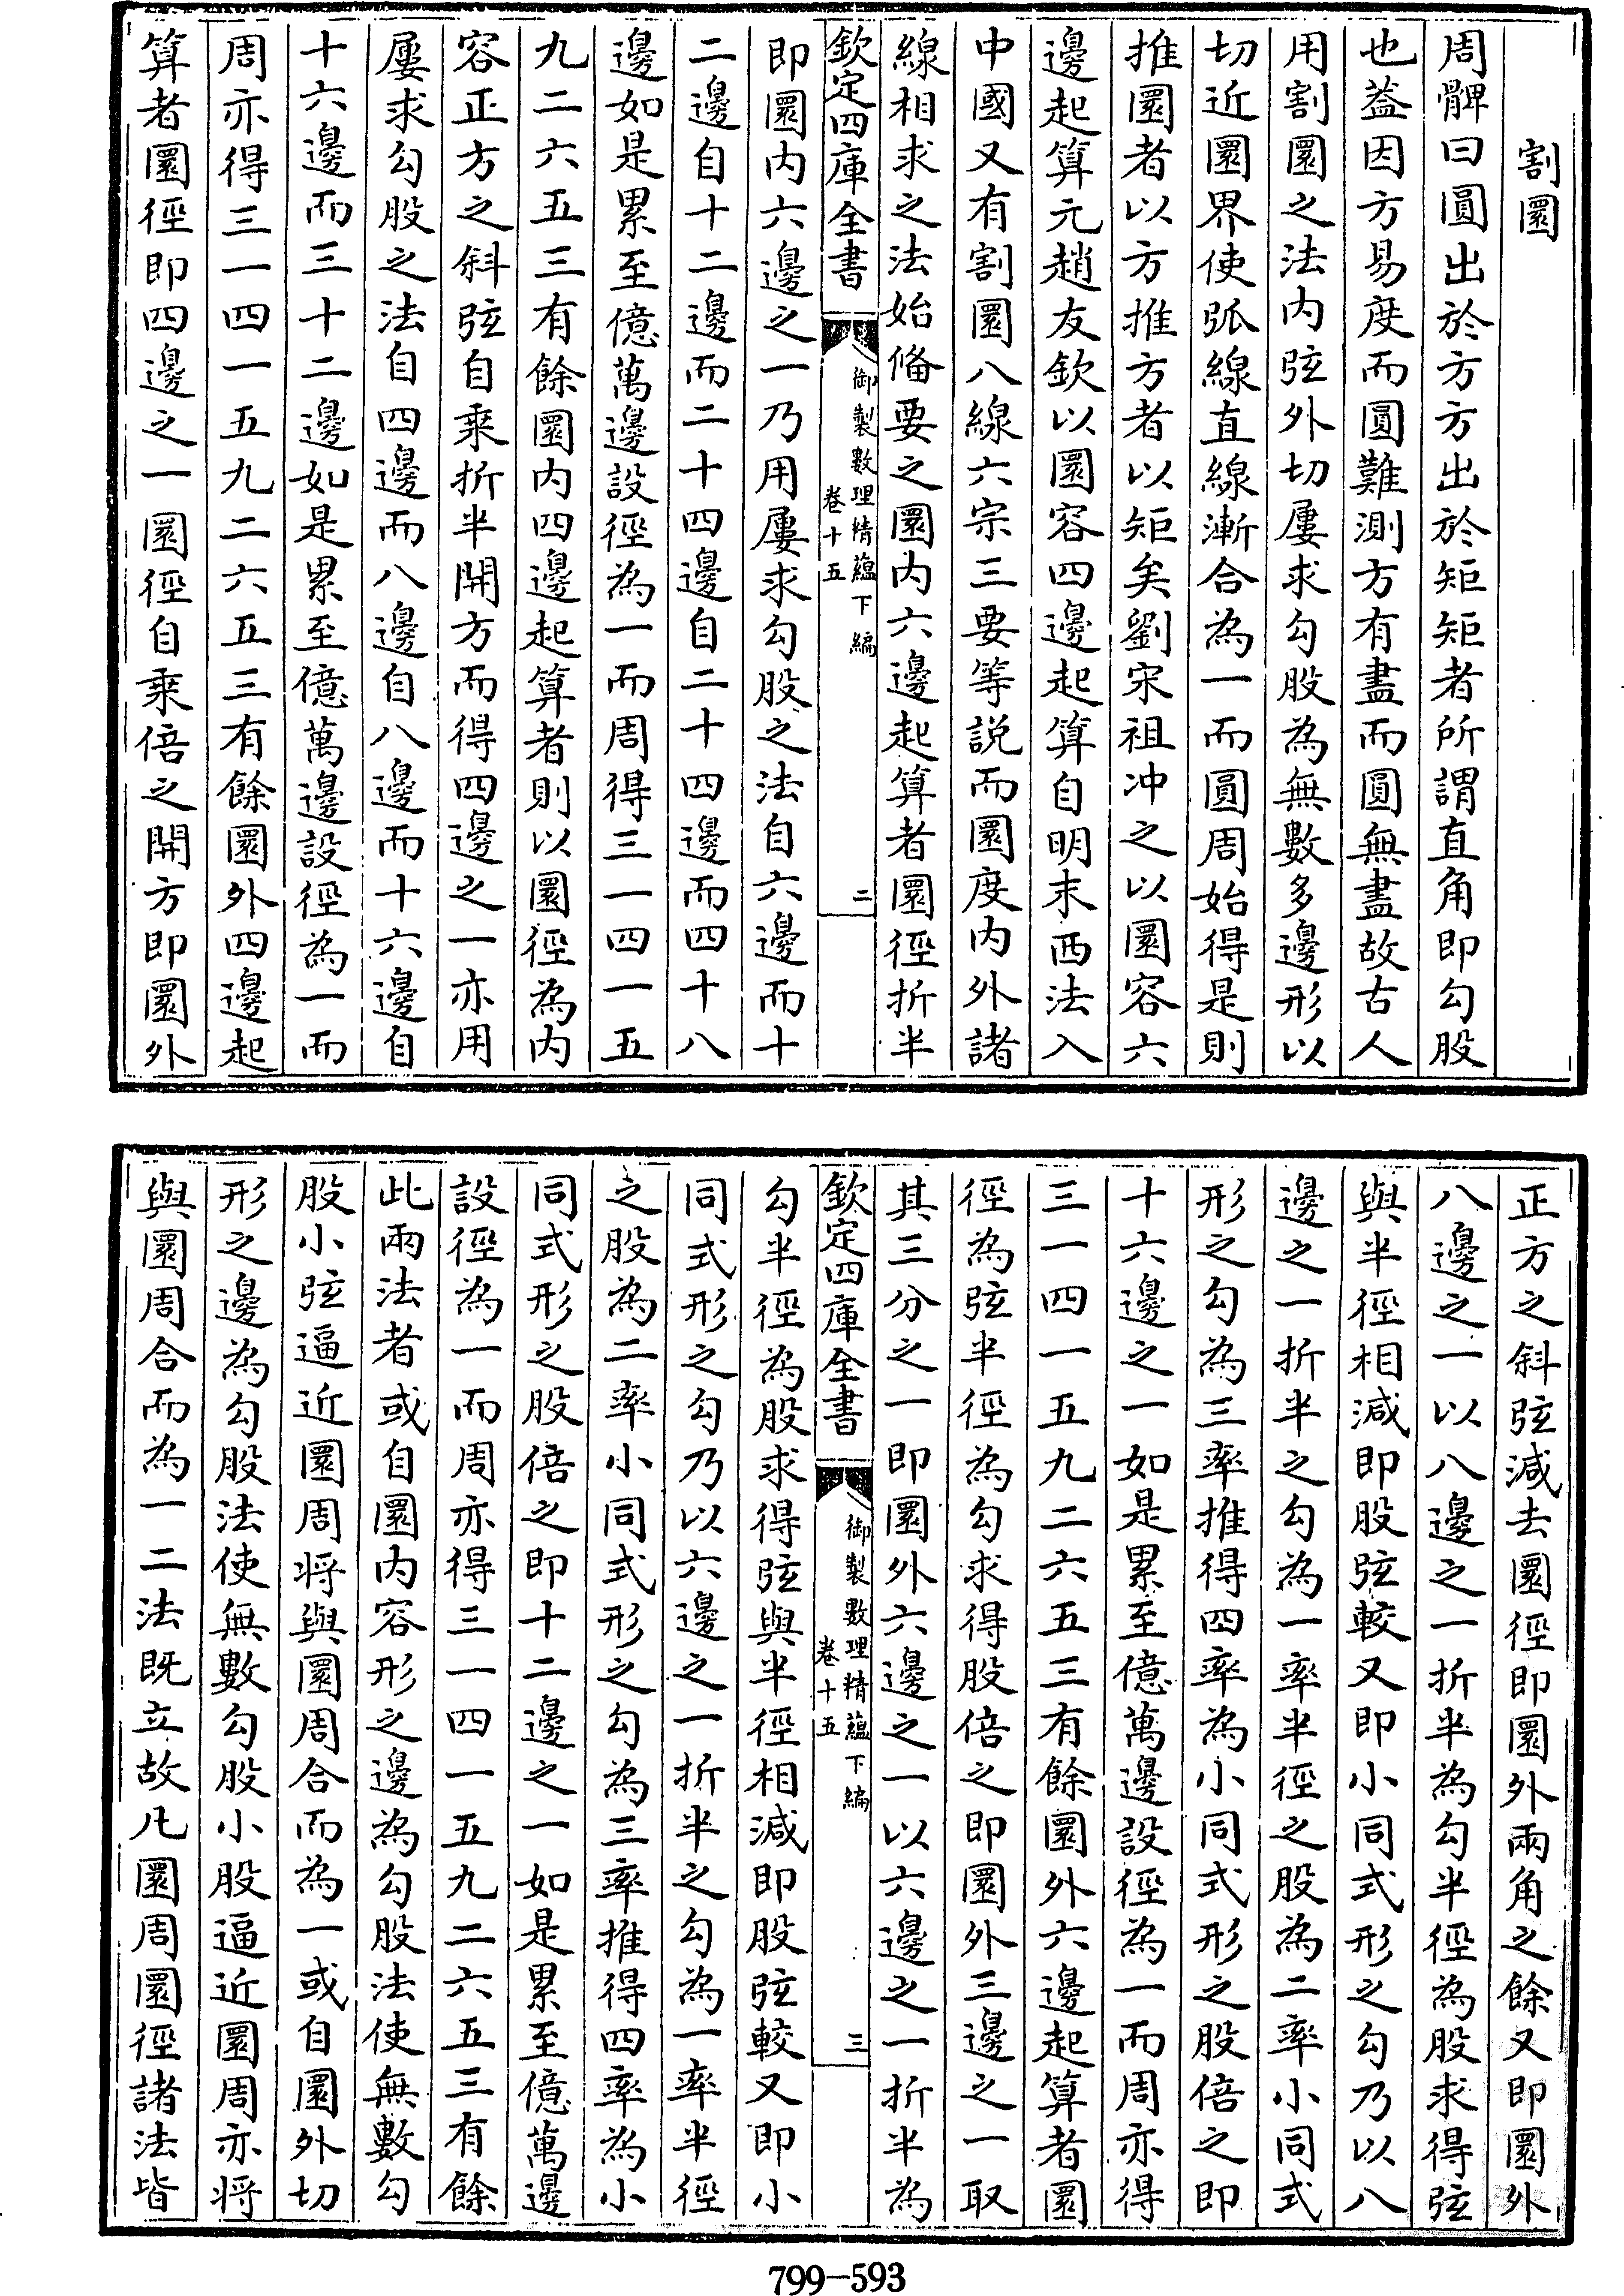 割圜
周髀曰圓出於方方出於矩矩者所謂直角即勾股
也葢因方易度而圓難測方有盡而圓無盡故古人
用割圜之法内弦外切屢求勾股為無數多邊形以
切近圜界使弧線直線漸合為一而圓周始得是則
推圜者以方推方者以矩矣劉宋祖冲之以圜容六
邊起算元趙友欽以圜容四邊起算自明末西法入
中國又有割圜八線六宗三要等説而圜度内外諸
線相求之法始備要之圜内六邊起算者圜徑折半
欽定四庫全書
御製數理精蘊下編
卷十五
二
即圜内六邊之一乃用屢求勾股之法自六邊而十
二邊自十二邊而二十四邊自二十四邊而四十八
邊如是累至億萬邊設徑為一而周得三一四一五
九二六五三有餘圜内四邊起算者則以圜徑為内
容正方之斜弦自乗折半開方而得四邊之一亦用
屢求勾股之法自四邊而八邊自八邊而十六邊自
十六邊而三十二邊如是累至億萬邊設徑為一而
周亦得三一四一五九二六五三有餘圜外四邊起
算者圜徑即四邊之一圜徑自乗倍之開方即圜外
正方之斜弦減去圜徑即圜外兩角之餘又即圜外
八邊之一以八邊之一折半為勾半徑為股求得弦
與半徑相減即股弦較又即小同式形之勾乃以八
邊之一折半之勾為一率半徑之股為二率小同式
形之勾為三率推得四率為小同式形之股倍之即
十六邊之一如是累至億萬邊設徑為一而周亦得
三一四一五九二六五三有餘圜外六邊起算者圜
徑為弦半徑為勾求得股倍之即圜外三邊之一取
其三分之一即圜外六邊之一以六邊之一折半為
欽定四庫全書
御製數理精蘊下編
卷十五
三
勾半徑為股求得弦與半徑相減即股弦較又即小
同式形之勾乃以六邊之一折半之勾為一率半徑
之股為二率小同式形之勾為三率推得四率為小
同式形之股倍之即十二邊之一如是累至億萬邊
設徑為一而周亦得三一四一五九二六五三有餘
此兩法者或自圜内容形之邊為勾股法使無數勾
股小弦逼近圜周将與圜周合而為一或自圜外切
形之邊為勾股法使無數勾股小股逼近圜周亦将
與圜周合而為一二法既立故凡圜周圜徑諸法皆
799-593